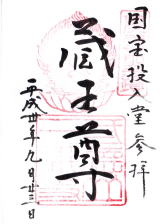 国宝投入堂参拝
蔵王尊
平成廿年九月廿三日